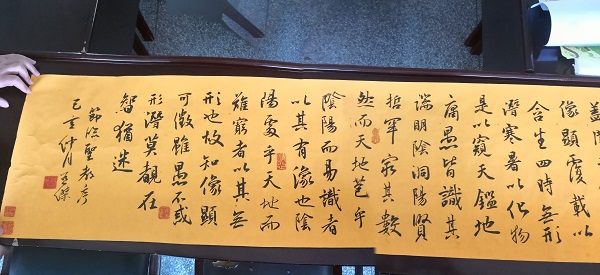 蓋聞
像顯覆載以
含生四時無形
潛寒暑以化物
是以窺天鑑地
庸愚皆識其
端明陰洞陽賢
哲罕窮其數
然而天地苞乎
陰陽而易識者
以其有像也陰
陽處乎天地而
難窮者以其無
形也故知像顯
可徵雖愚不惑
形潛莫覩在
智猶迷
節臨聖教序
己亥仲月